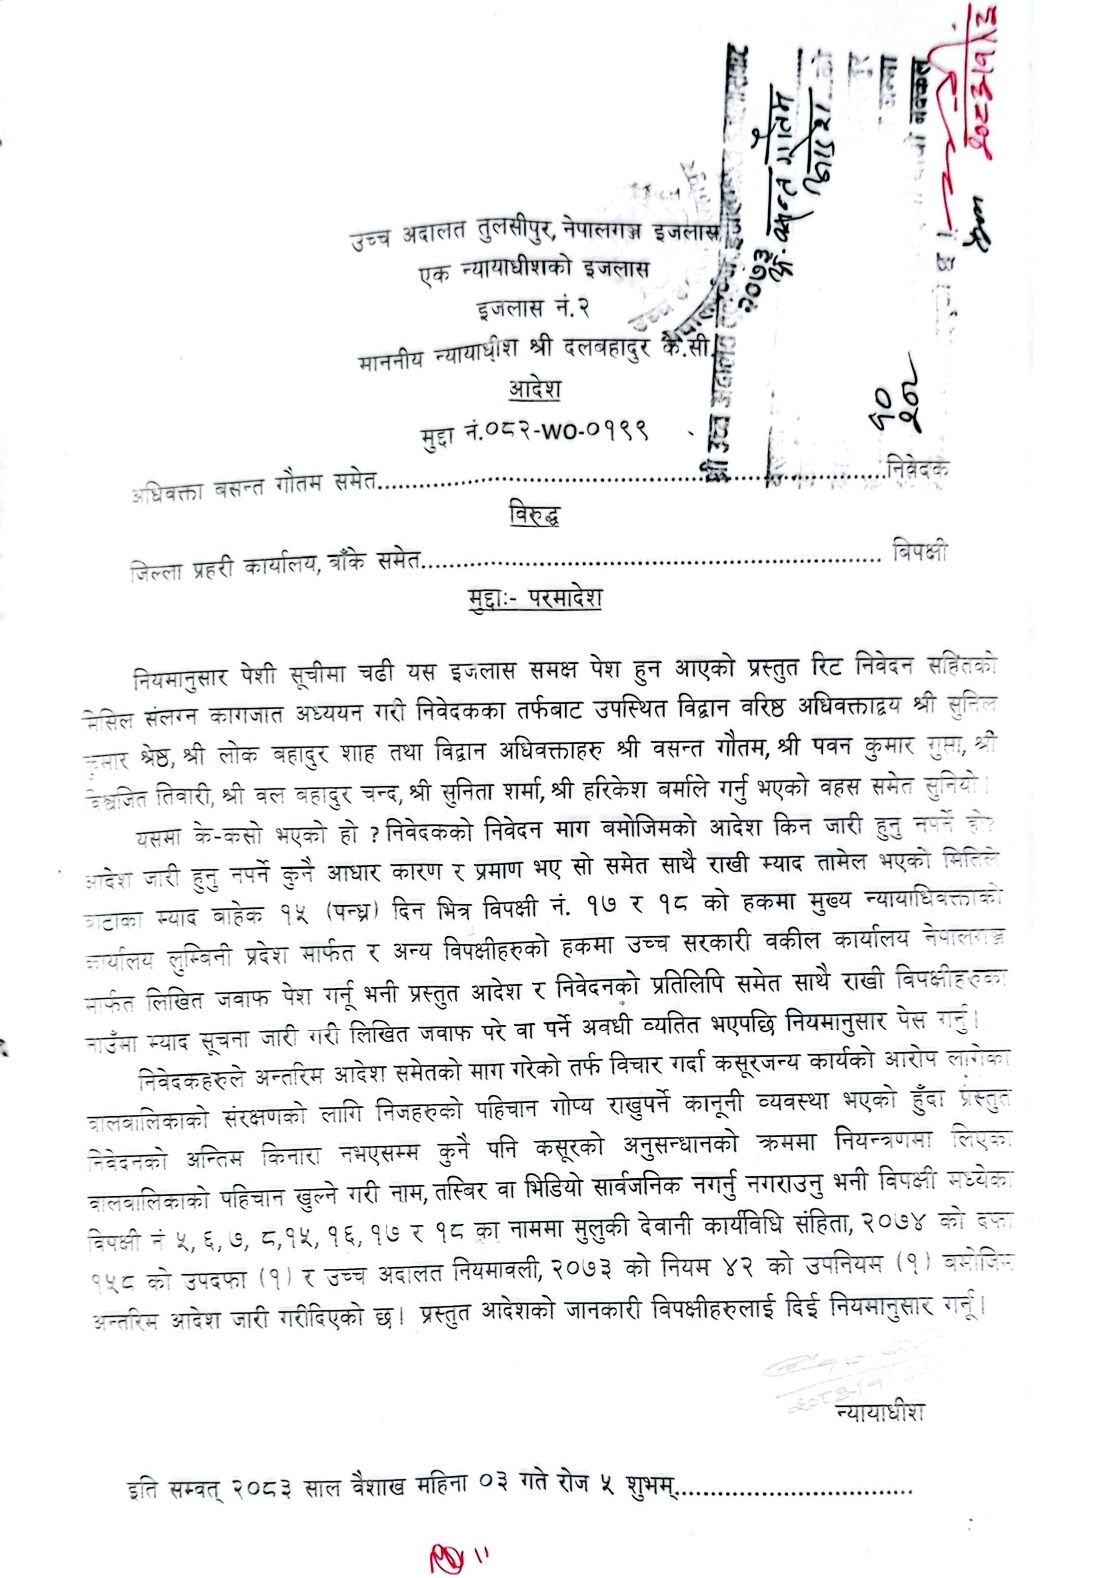 उच्च अदालत तुलसीपुर, नेपालगञ्ज इजलास
एक न्यायाधीशको इजलास
इजलास नं.२
माननीय न्यायाधीश श्री दलबहादुर के.सी.
आदेश
मुद्दा नं.०८२-WO-०१९९
अधिवक्ता बसन्त गौतम समेत..........................................................................निवेदक
विरुद्ध
जिल्ला प्रहरी कार्यालय, बाँके समेत.................................................................. विपक्षी
मुद्दाः- परमादेश
नियमानुसार पेशी सूचीमा चढी यस इजलास समक्ष पेश हुन आएको प्रस्तुत रिट निवेदन सहितको
मिसिल संलग्न कागजात अध्ययन गरी निवेदकका तर्फबाट उपस्थित विद्वान वरिष्ठ अधिवक्ताद्वय श्री सुनिल
कुमार श्रेष्ठ, श्री लोक बहादुर शाह तथा विद्वान अधिवक्ताहरु श्री वसन्त गौतम, श्री पवन कुमार गुप्ता, श्री
विश्वजित तिवारी, श्री वल बहादुर चन्द, श्री सुनिता शर्मा, श्री हरिकेश बर्माले गर्नु भएको वहस समेत सुनियो।
यसमा के-कसो भएको हो ? निवेदकको निवेदन माग बमोजिमको आदेश किन जारी हुनु नपर्ने हो?
आदेश जारी हुनु नपर्ने कुनै आधार कारण र प्रमाण भए सो समेत साथै राखी म्याद तामेल भएको मितिले
बाटाका म्याद बाहेक १५ (पन्ध्र) दिन भित्र विपक्षी नं. १७ र १८ को हकमा मुख्य न्यायाधिवक्ताको
कार्यालय लुम्बिनी प्रदेश मार्फत र अन्य विपक्षीहरुको हकमा उच्च सरकारी वकील कार्यालय नेपालगञ्ज
मार्फत लिखित जवाफ पेश गर्नू भनी प्रस्तुत आदेश र निवेदनको प्रतिलिपि समेत साथै राखी विपक्षीहरुका
नाउँमा म्याद सूचना जारी गरी लिखित जवाफ परे वा पर्ने अवधी व्यतित भएपछि नियमानुसार पेस गर्नु।
निवेदकहरुले अन्तरिम आदेश समेतको माग गरेको तर्फ विचार गर्दा कसूरजन्य कार्यको आरोप लागेका
बालबालिकाको संरक्षणको लागि निजहरुको पहिचान गोप्य राखुपर्ने कानूनी व्यवस्था भएको हुँदा प्रस्तुत
निवेदनको अन्तिम किनारा नभएसम्म कुनै पनि कसूरको अनुसन्धानको क्रममा नियन्त्रणमा लिएका
बालबालिकाको पहिचान खुल्ने गरी नाम, तस्बिर वा भिडियो सार्वजनिक नगर्नु नगराउनु भनी विपक्षी मध्येका
विपक्षी नं ५, ६, ७, ८,१५, १६, १७ र १८ का नाममा मुलुकी देवानी कार्यविधि संहिता, २०७४ को दफा
१५८ को उपदफा (१) र उच्च अदालत नियमावली, २०७३ को नियम ४२ को उपनियम (१) बमोजिम
अन्तरिम आदेश जारी गरीदिएको छ। प्रस्तुत आदेशको जानकारी विपक्षीहरुलाई दिई नियमानुसार गर्नू।
न्यायाधीश
इति सम्वत् २०८३ साल वैशाख महिना ०३ गते रोज ५ शुभम्..................................